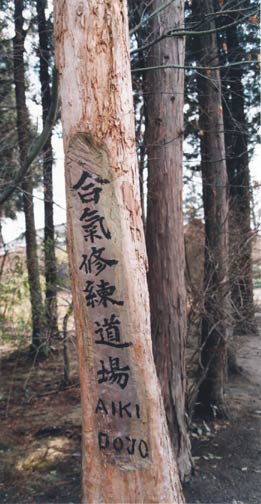 合氣修練道場
AIKI
DOJO